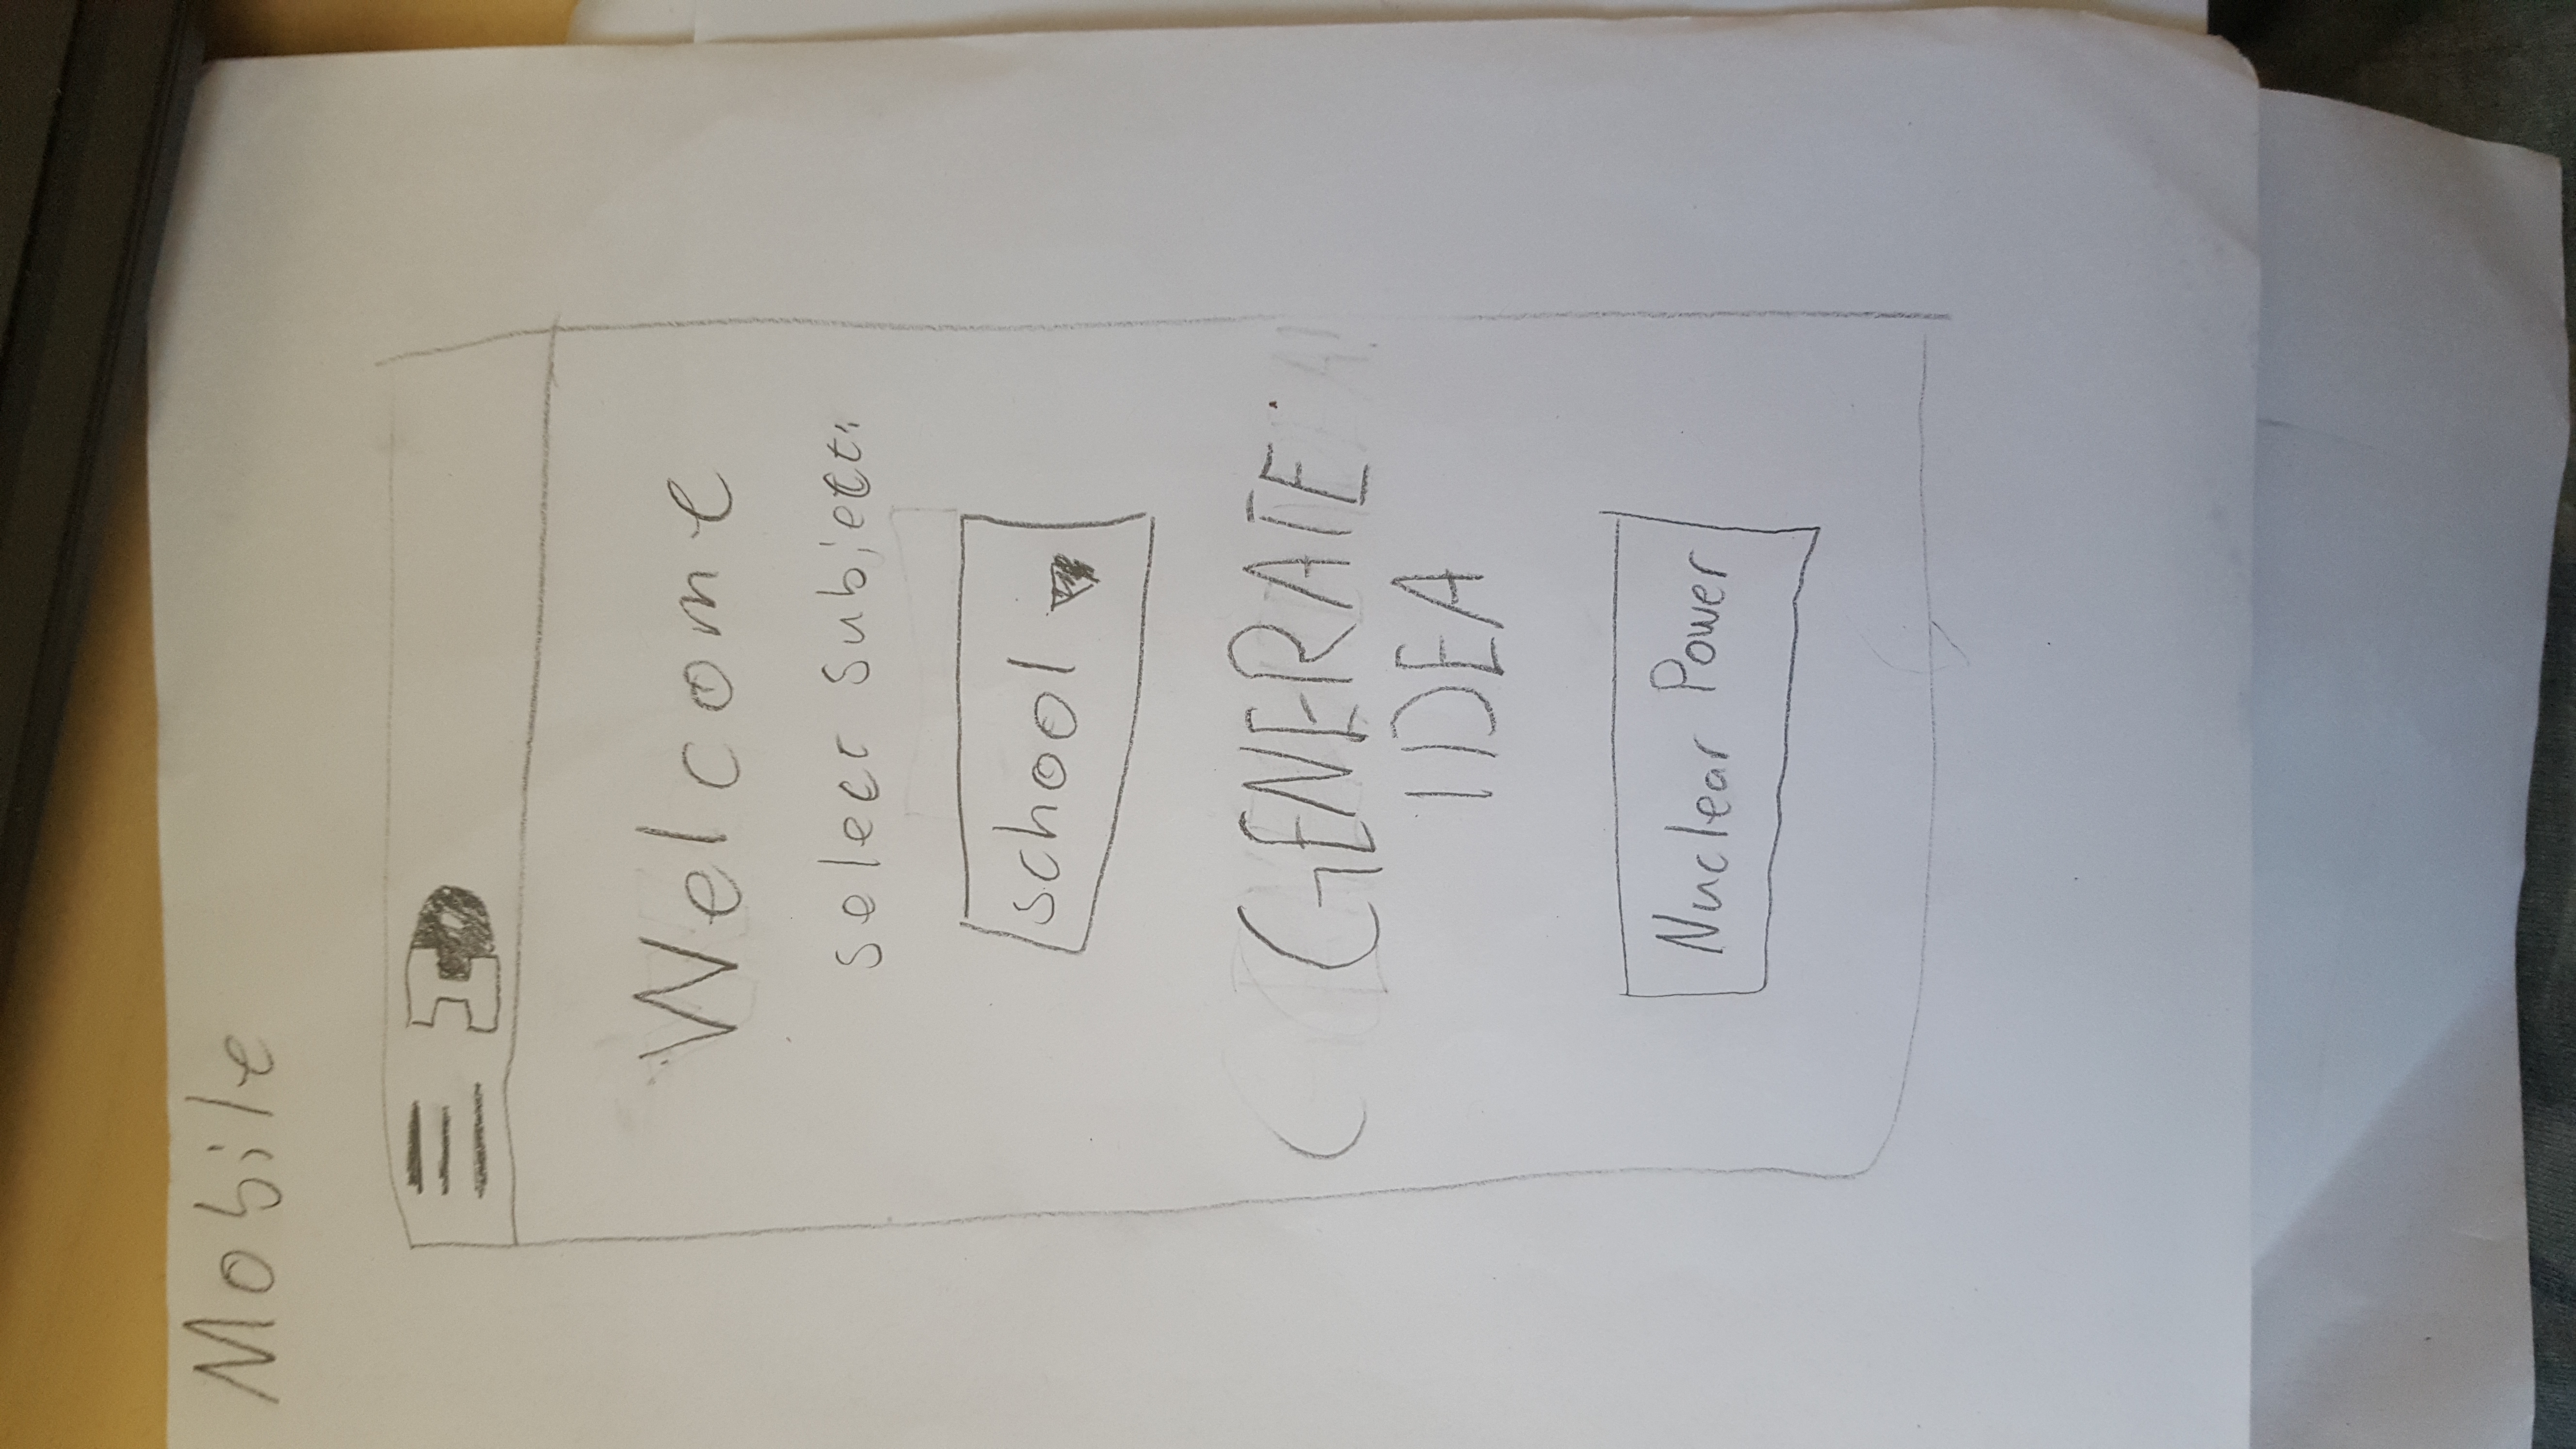 Mobile
ID
Welcome
select subject:
school
GENERATE
IDEA
Nuclear Power